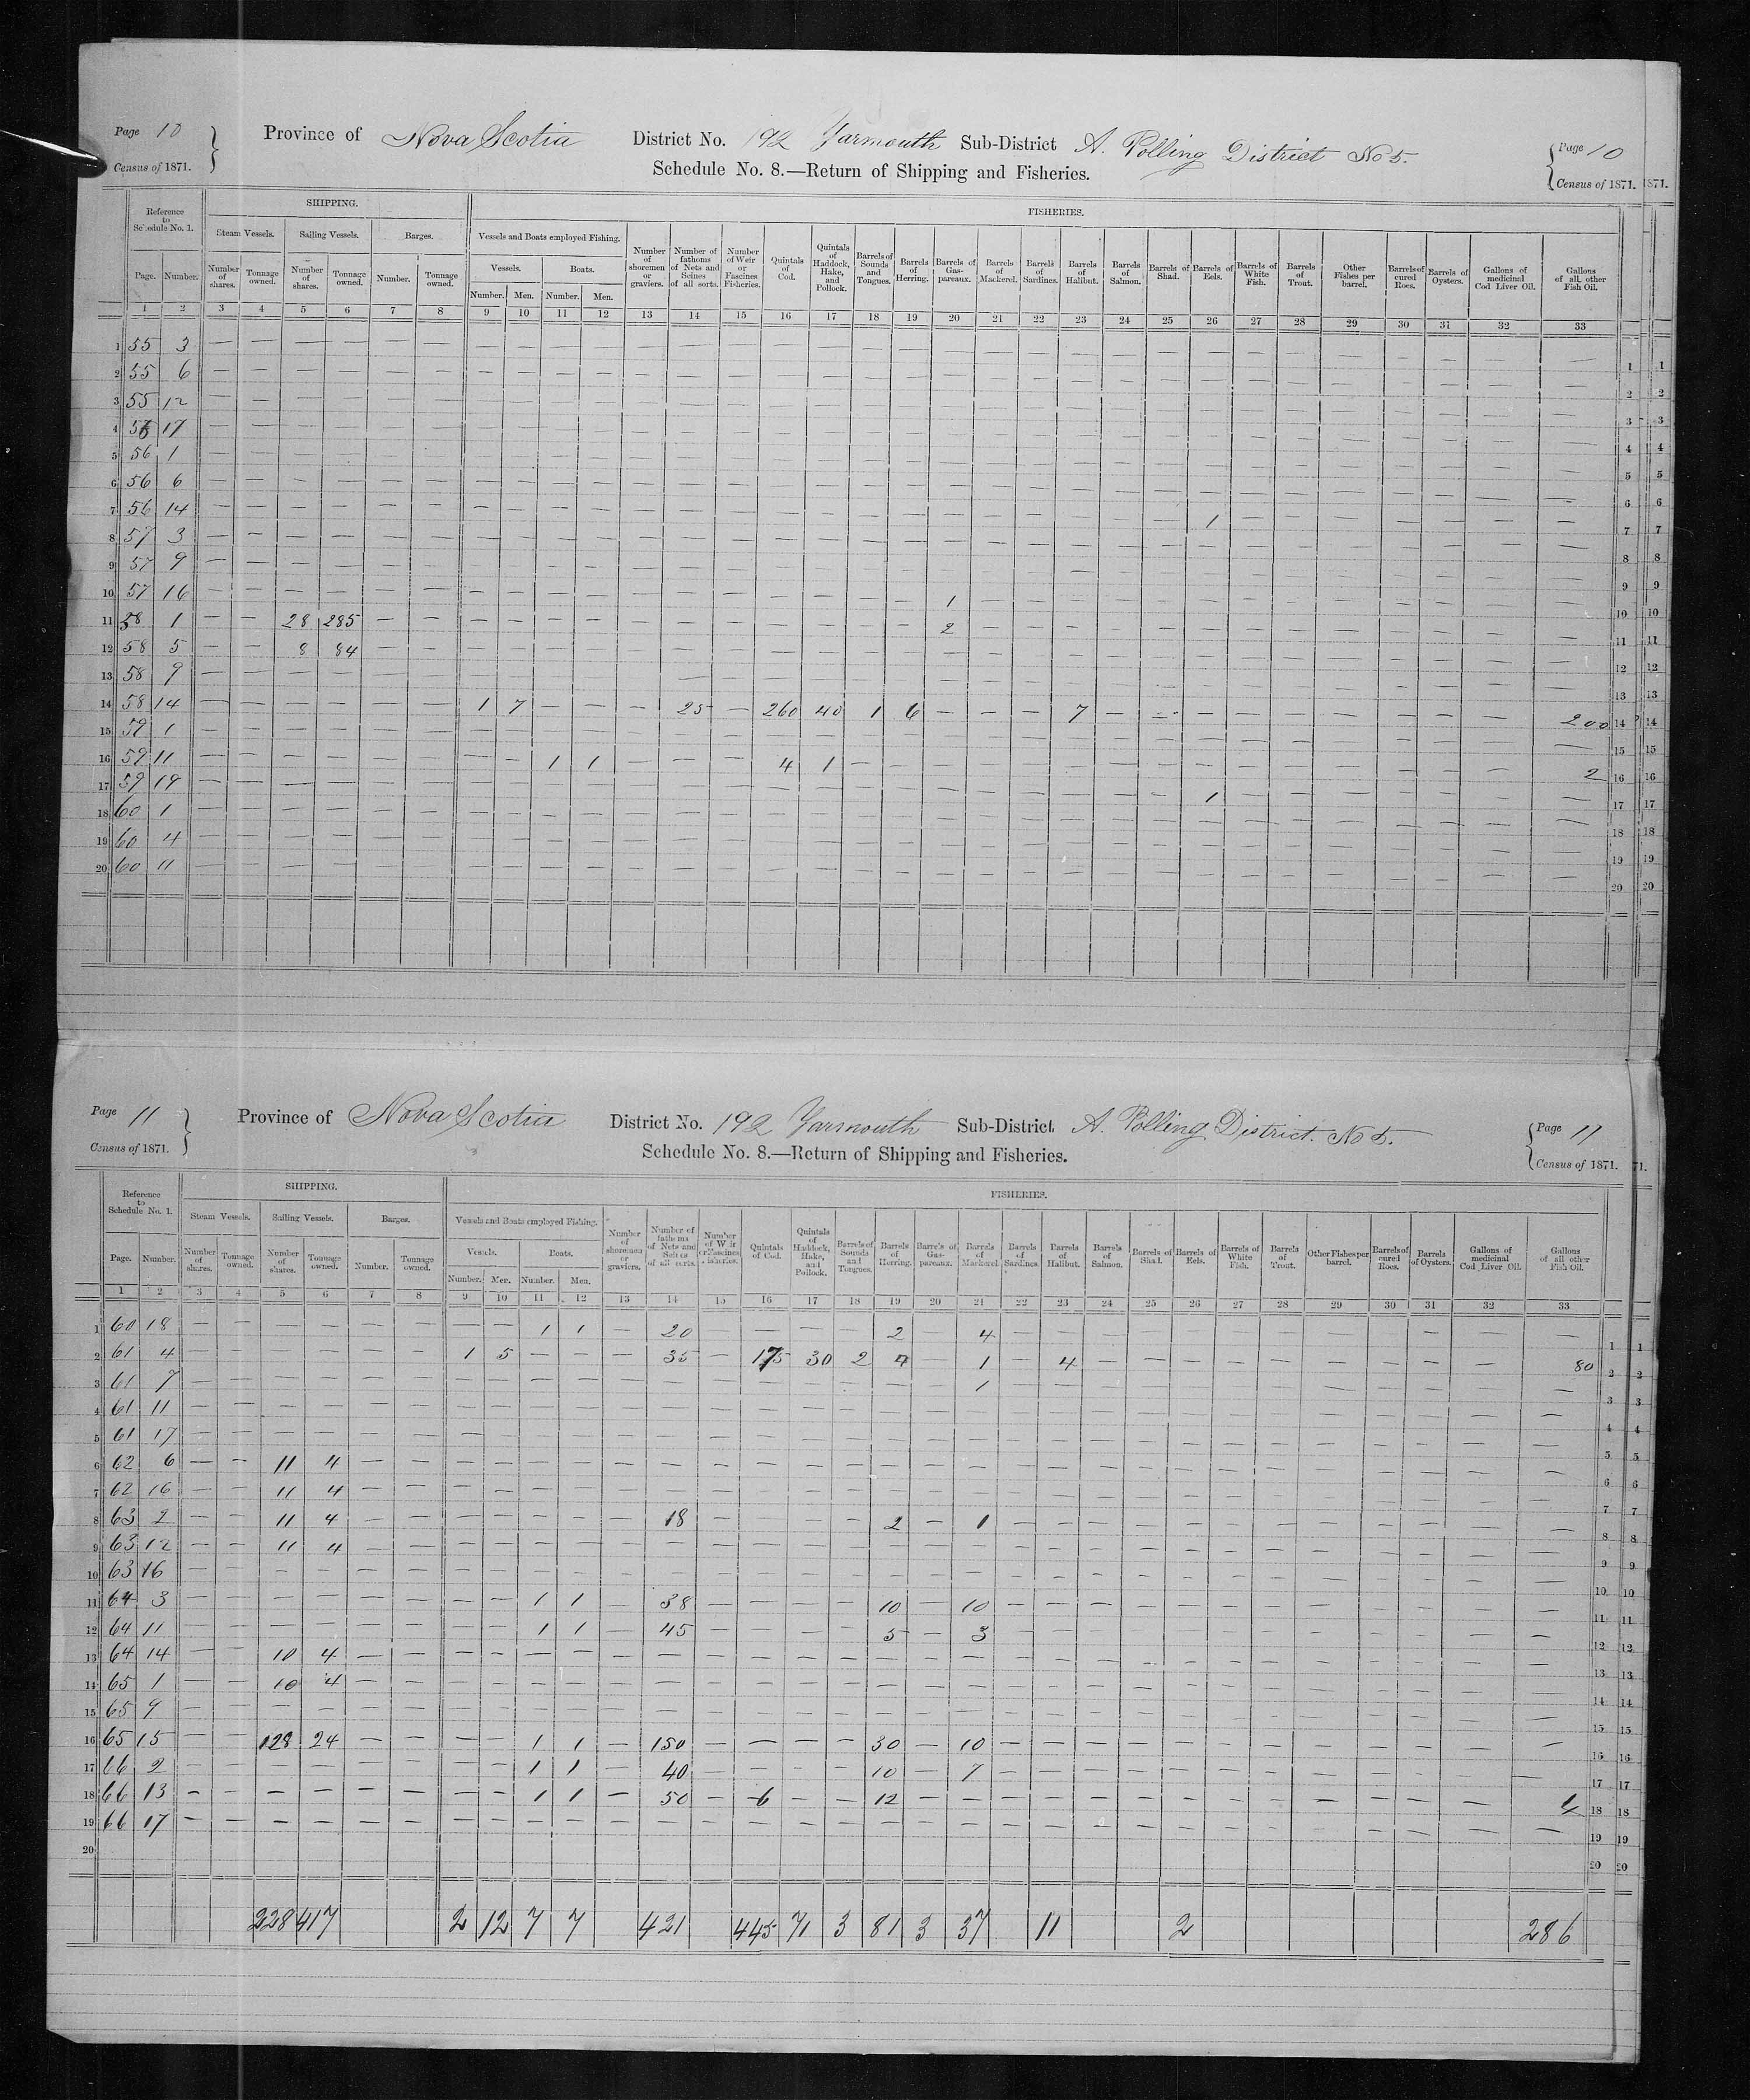 Page 10 Province of Nova Scotia District No. 192 Yarmouth Sub-District A. Polling District No 5. Page 10
Census of 1871. Schedule No. 8.—Return of Shipping and Fisheries. Census of 1871. 1871.
Reference to Schedule No. 1. SHIPPING. FISHERIES.
Steam Vessels. Sailing Vessels. Barges. Vessels and Boats employed Fishing.
Vessels. Boats.
Page. Number. Number of shares. Tonnage owned. Number of shares. Tonnage owned. Number. Tonnage owned. Number. Men. Number. Men. Number of shoremen or graviers. Number of fathoms of Nets and Seines of all sorts. Number of Weir or Fascines Fisheries. Quintals of Cod. Quintals of Haddock, Hake, and Pollock. Barrels of Sounds and Tongues. Barrels of Herring. Barrels of Gaspareaux. Barrels of Mackerel. Barrels of Sardines. Barrels of Halibut. Barrels of Salmon. Barrels of Shad. Barrels of Eels. Barrels of White Fish. Barrels of Trout. Other Fishes per barrel. Barrels of cured Roes. Barrels of Oysters. Gallons of medicinal Cod Liver Oil. Gallons of all other Fish Oil.
1 2 3 4 5 6 7 8 9 10 11 12 13 14 15 16 17 18 19 20 21 22 23 24 25 26 27 28 29 30 31 32 33
1 55 3 1 1
2 55 6 2 2
3 55 12 3 3
4 17 4 4
5 56 1 5 5
6 56 6 6 6
7 56 14 1 7 7
8 57 3 8 8
9 57 9 9 9
10 57 16 1 10 10
11 58 1 28 285 2 11 11
12 58 5 8 84 12 12
13 58 9 13 13
14 58 14 1 7 25 260 40 1 6 7 200 14 14
15 59 1 15 15
16 59 11 1 1 4 1 2 16 16
17 59 19 1 17 17
18 60 1 18 18
19 60 4 19 19
20 60 11 20 20
Page 11 Province of Nova Scotia District No. 192 Yarmouth Sub-District A. Polling District. No 5. Page 11
Census of 1871. Schedule No. 8.—Return of Shipping and Fisheries. Census of 1871. 71.
Reference to Schedule No. 1. SHIPPING. FISHERIES.
Steam Vessels. Sailing Vessels. Barges. Vessels and Boats employed Fishing.
Vessels. Boats.
Page. Number. Number of shares. Tonnage owned. Number of shares. Tonnage owned. Number. Tonnage owned. Number. Men. Number. Men. Number of shoremen or graviers. Number of fathoms of Nets and Seines of all sorts. Number of Weir or Fascines Fisheries. Quintals of Cod. Quintals of Haddock, Hake, and Pollock. Barrels of Sounds and Tongues. Barrels of Herring. Barrels of Gaspareaux. Barrels of Mackerel. Barrels of Sardines. Barrels of Halibut. Barrels of Salmon. Barrels of Shad. Barrels of Eels. Barrels of White Fish. Barrels of Trout. Other Fishes per barrel. Barrels of cured Roes. Barrels of Oysters. Gallons of medicinal Cod Liver Oil. Gallons of all other Fish Oil.
1 2 3 4 5 6 7 8 9 10 11 12 13 14 15 16 17 18 19 20 21 22 23 24 25 26 27 28 29 30 31 32 33
1 60 18 1 1 20 2 4 1 1
2 61 4 1 5 35 175 30 2 4 1 4 80 2 2
3 61 7 1 3 3
4 61 11 4 4
5 61 17 5 5
6 62 6 11 4 6 6
7 62 16 11 4 7 7
8 63 2 11 4 18 2 1 8 8
9 63 12 11 4 9 9
10 63 16 10 10
11 64 3 1 1 38 10 10 11 11
12 64 11 1 1 45 5 3 12 12
13 64 14 10 4 13 13
14 65 1 10 4 14 14
15 65 9 15 15
16 65 15 128 24 1 1 150 30 10 16 16
17 66 2 1 1 40 10 7 17 17
18 66 13 1 1 50 6 12 4 18 18
19 66 17 19 19
20 20 20
228 417 2 12 7 7 421 445 71 3 81 3 37 11 2 286